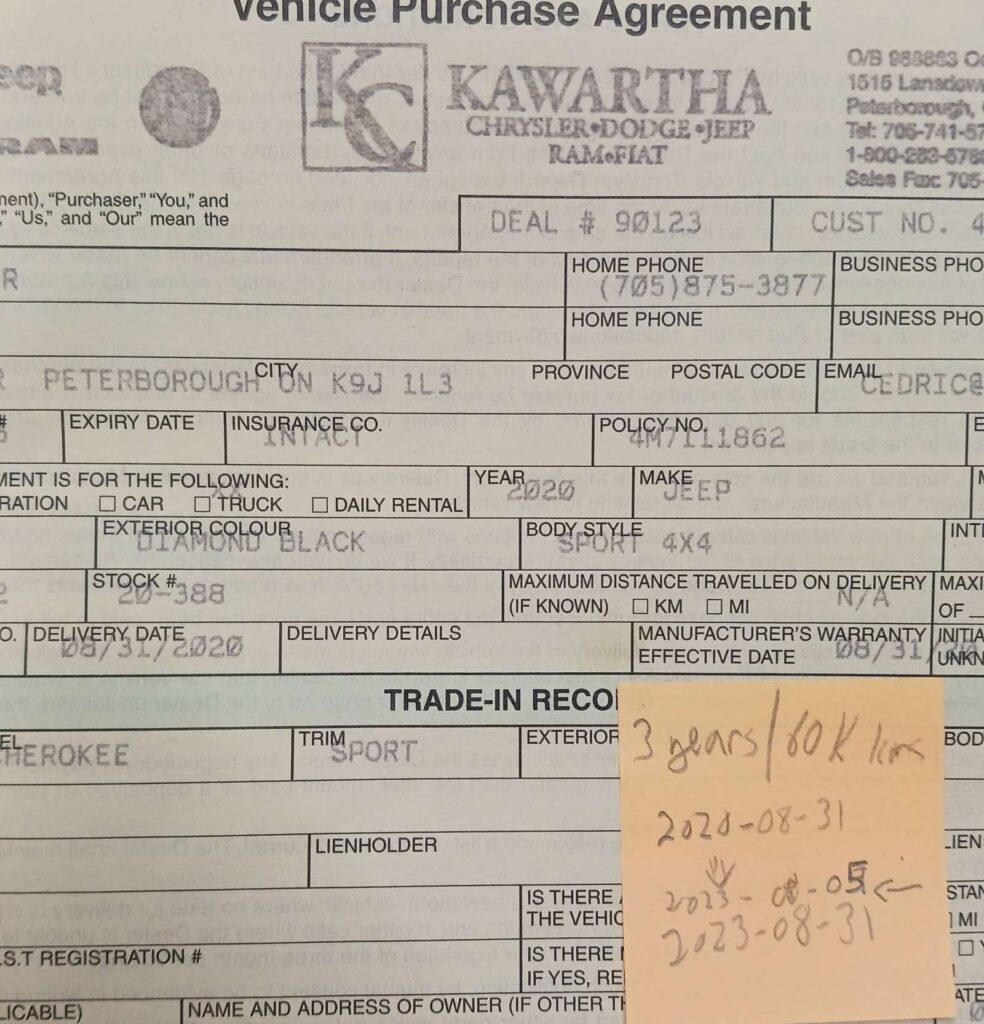 Vehicle Purchase Agreement
KAWARTHA
CHRYSLER•DODGE•JEEP
RAM•FIAT
O/B 988883
1516
Peterborough,
Tel: 705-741-57
1-800-263-
Sales Fax: 705-
RAM
"Purchaser," "You," and
"Us," and "Our" mean the
DEAL # 90123
CUST NO. 4
HOME PHONE
(705)875-3877
BUSINESS PHO
HOME PHONE
BUSINESS PHO
CITY
PROVINCE
POSTAL CODE
EMAIL
PETERBOROUGH ON K9J 1L3
CEDRIC@
EXPIRY DATE
INSURANCE CO.
INTACT
POLICY NO.
4M7111862
MENT IS FOR THE FOLLOWING:
XX
RATION ☐ CAR ☐ TRUCK ☐ DAILY RENTAL
YEAR
2020
MAKE
JEEP
EXTERIOR COLOUR
DIAMOND BLACK
BODY STYLE
SPORT 4X4
STOCK #
20-388
MAXIMUM DISTANCE TRAVELLED ON DELIVERY
(IF KNOWN) ☐ KM ☐ MI
N/A
OF
DELIVERY DATE
08/31/2020
DELIVERY DETAILS
MANUFACTURER'S WARRANTY
EFFECTIVE DATE
08/31/20
TRADE-IN RECO
HEROKEE
TRIM
SPORT
EXTERIOR
3 years/60K kms
2020-08-31
2023-08-31
LIENHOLDER
IS THERE
THE VEHIC
.S.T REGISTRATION #
IS THERE
IF YES, RE
LICABLE)
NAME AND ADDRESS OF OWNER (IF OTHER TH